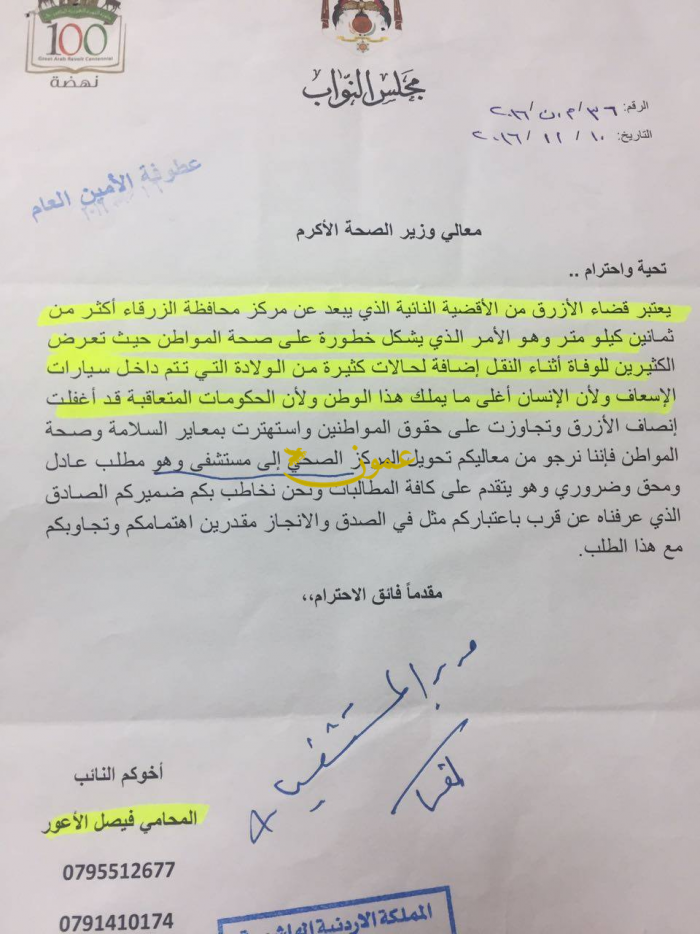 100
Great Arab Revolt Centennial
نهضة
مجلس النواب
الرقم: ٣٦/م.ن/٢٠١٦
التاريخ: ١٠/١٢/٢٠١٦
عطوفة الأمين العام
معالي وزير الصحة الأكرم
تحية واحترام ..
يعتبر قضاء الأزرق من الأقضية النائية الذي يبعد عن مركز محافظة الزرقاء أكثر من
ثمانين كيلو متر وهو الأمر الذي يشكل خطورة على صحة المواطن حيث تعرض
الكثيرين للوفاة أثناء النقل إضافة لحالات كثيرة من الولادة التي تتم داخل سيارات
الإسعاف ولأن الإنسان أغلى ما يملك هذا الوطن ولأن الحكومات المتعاقبة قد أغفلت
إنصاف الأزرق وتجاوزت على حقوق المواطنين واستهترت بمعاير السلامة وصحة
المواطن فإننا نرجو من معاليكم تحويل المركز الصحي إلى مستشفى وهو مطلب عادل
عموز
ومحق وضروري وهو يتقدم على كافة المطالبات ونحن نخاطب بكم ضميركم الصادق
الذي عرفناه عن قرب باعتباركم مثل في الصدق والانجاز مقدرين اهتمامكم وتجاوبكم
مع هذا الطلب.
مقدماً فائق الاحترام،،
أخوكم النائب
المحامي فيصل الأعور
0795512677
0791410174
المملكة الاردنية الهاشمية